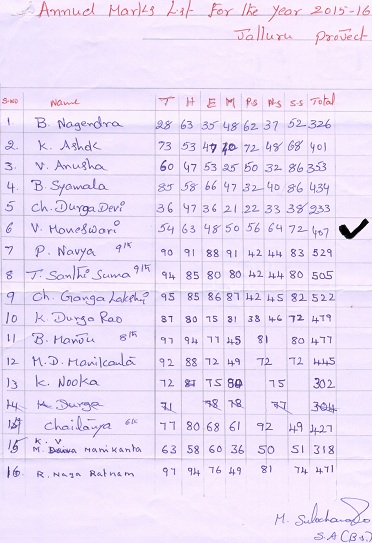 Annual Marks List For the Year 2015-16
Jalluru project
S.NO Name T H E M P.S N.S S.S Total
1 B. Nagendra 28 63 35 48 62 37 52 326
2. K. Ashok 73 53 47 40 72 48 68 401
3. V. Anusha 60 47 53 25 50 32 86 353
4. B. Syamala 85 58 66 47 32 40 86 434
5 Ch. Durga Devi 36 47 36 21 22 33 38 233
6 V. Maneswari 54 63 48 50 56 64 72 407
7 P. Navya 90 91 88 91 42 44 83 529
8 T. Santhi Suma 94 85 80 80 42 44 80 505
9 Ch. Ganga Lakshmi 95 85 86 87 42 45 82 522
10 K. Durga Rao 87 80 75 81 38 46 72 479
11 B. 97 94 77 45 81 80 477
12 M.D. Manikanta 92 88 72 49 72 72 445
13 K. Nooka 72 87 75 80 75 302
14 K. Durga 71 78 78 77 304
Chaitanya 77 80 68 61 92 49 427
15 K. V
M. Manikanta 63 58 60 36 50 51 318
16. R. Naga Ratnam 97 94 76 49 81 74 471
S.A (B.S.)